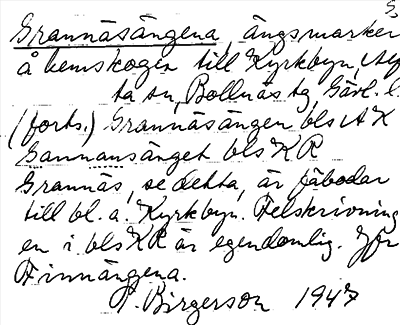 S
Grannäsängena, ängsmarker
å hemskogen till Kyrkbyn, Alf
ta sn, Bollnäs tg Gävl. l.
(forts.) Grannäsängen bls AK
Gannansänget bls KR
Grannäs, se detta, är fäbodar
till bl. a. Kyrkbyn. Felskrivning
en i bls KR är egendomlig. Jfr
Finnängena.
P. Birgerson 1947